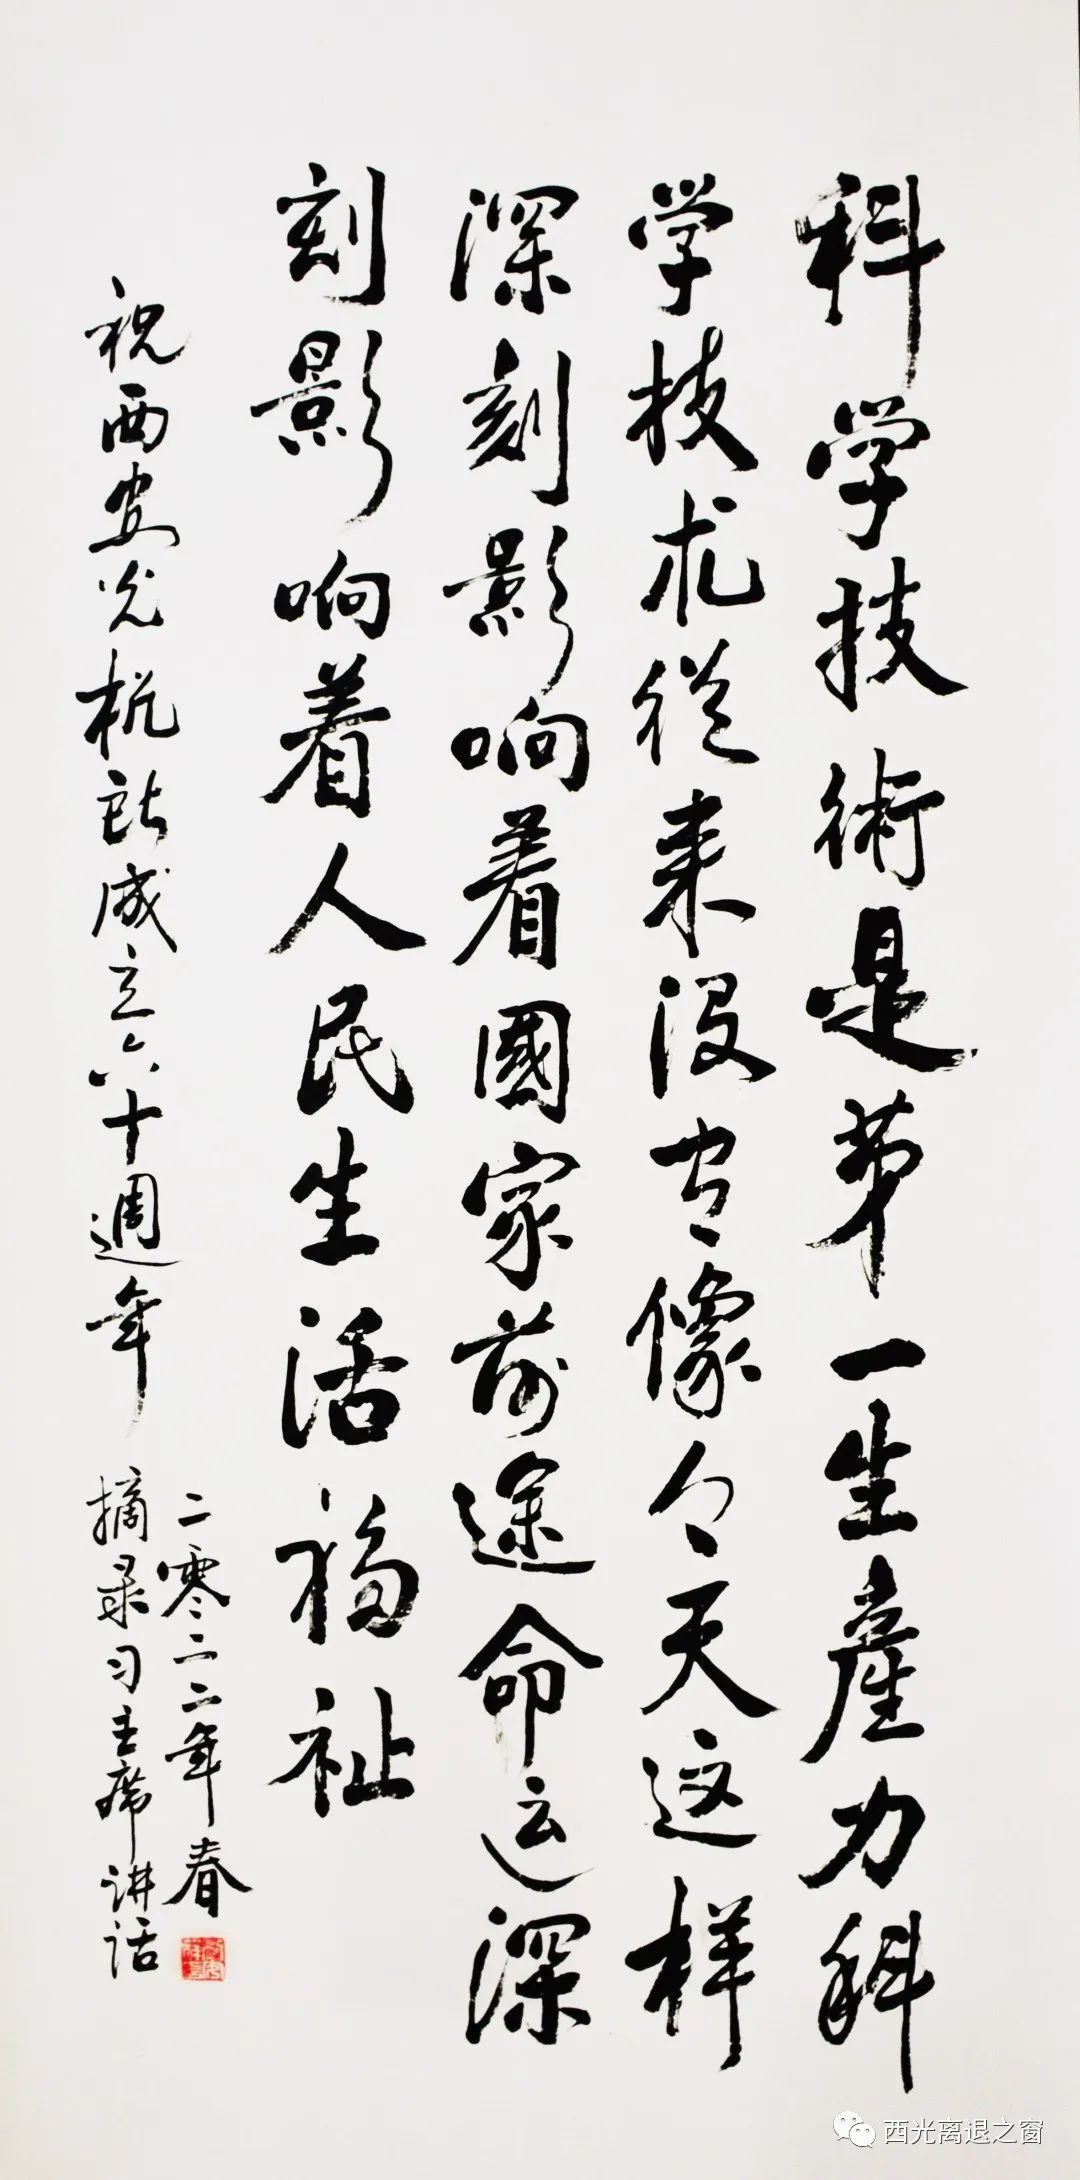 科学技術是第一生產力科
学技术從来没有像今天这样
深刻影响着國家前途命运深
刻影响着人民生活福祉
祝西安光机所成立六十週年
二零二二年春
摘录习主席讲话
西光离退之窗